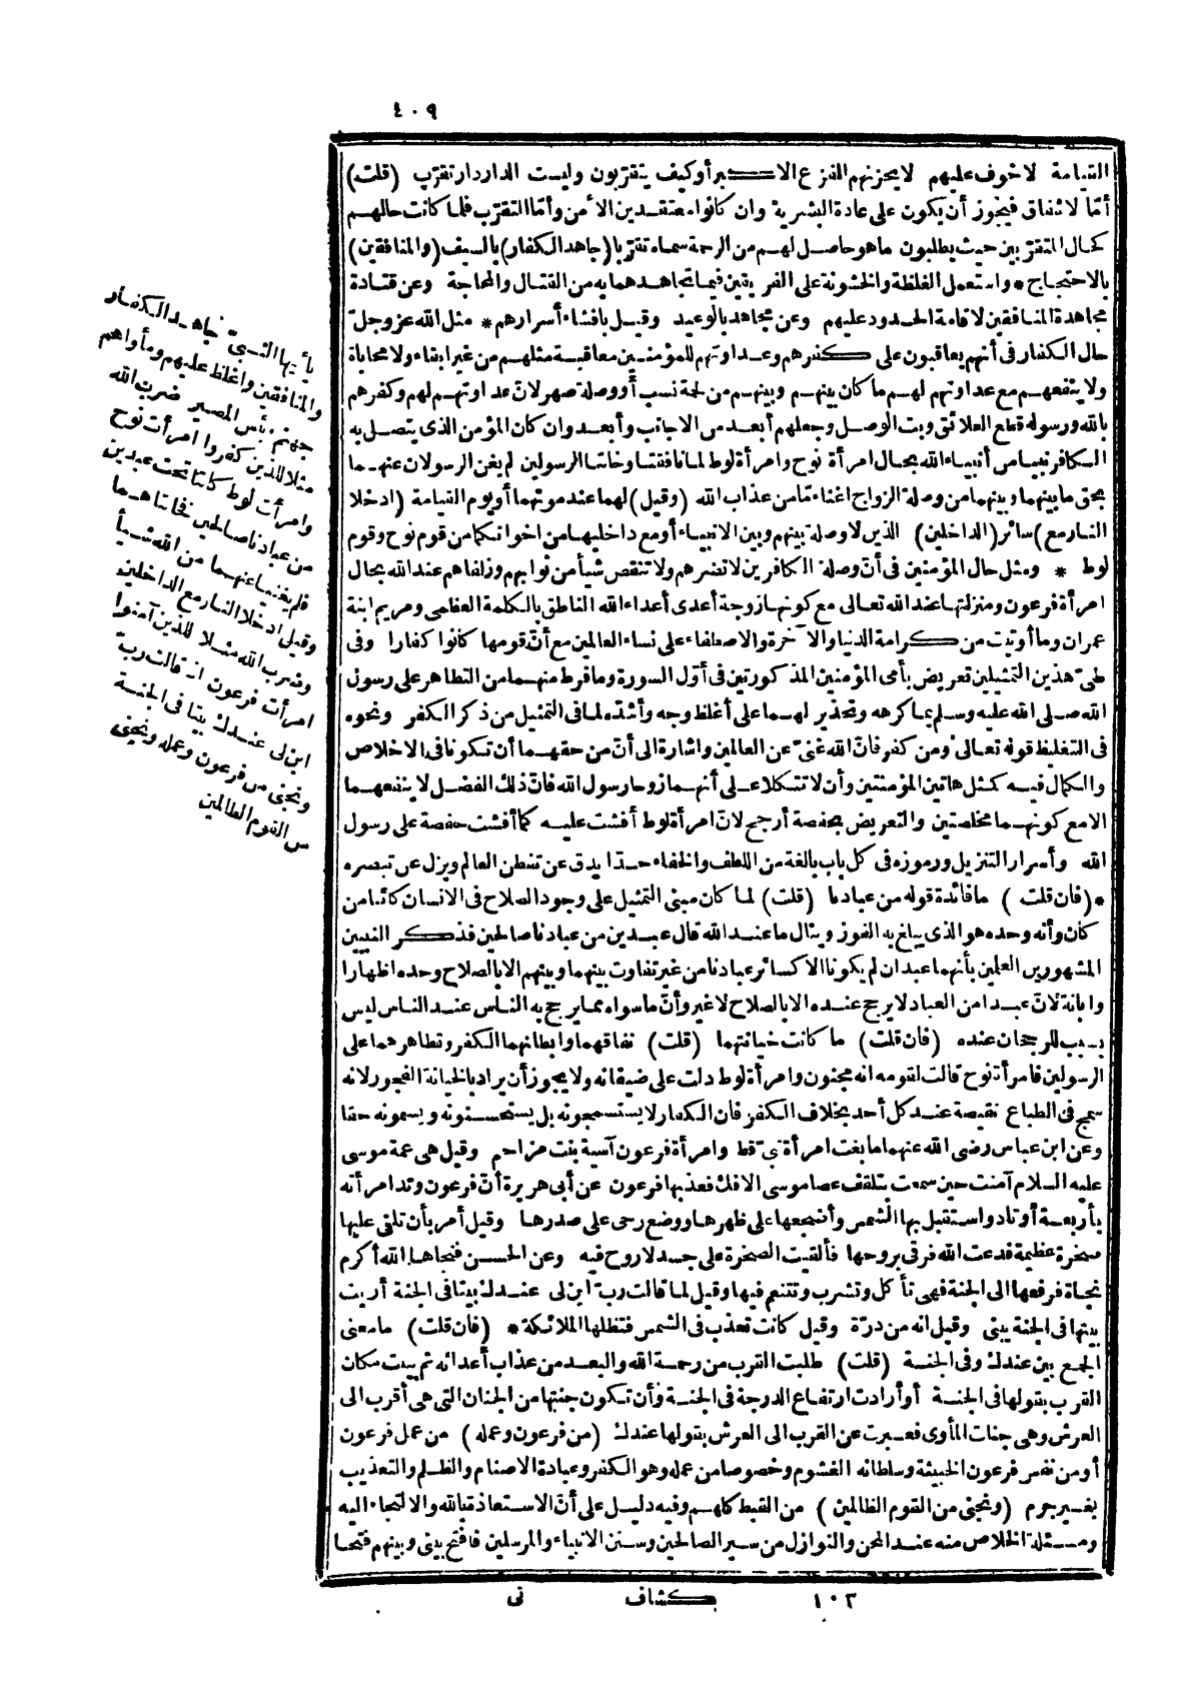 ٤٠٩
القيامة لاخوف عليهم لايحزنهم الفزع الاكبر أوكيف يتقربون وليست الدار دار تقرب (قلت)
أمّا الاشفاق فيجوز أن يكون على عادة البشرية وان كانوا معتقدين الأمن وأمّا التقرّب فلما كانت حالهم
كحال المتقرّبين حيث يطلبون ماهو حاصل لهم من الرحمة سماه تقرّبا (جاهد الكفار) بالسيف (والمنافقين)
بالاحتجاج * واستعمل الغلظة والخشونة على الفريقين فيما تجاهدهما به من القتال والمحاجة وعن قتادة
مجاهدة المنافقين لاقامة الحدود عليهم وعن مجاهد بالوعيد وقيل بافشاء أسرارهم * مثل الله عزوجل
حال الكفار فى أنهم يعاقبون على كفرهم وعداوتهم للمؤمنين معاقبة مثلهم من غير ابقاء ولا محاباة
ولا ينفعهم مع عداوتهم لهم ما كان بينهم وبينهم من لحمة نسب أو وصلة صهر لانّ عداوتهم لهم وكفرهم
بالله ورسوله قطع العلائق وبت الوصل وجعلهم أبعد من الاجانب وأبعد وان كان المؤمن الذى يتصل به
الكافر نبيا من أنبياء الله بحال امرأة نوح وامرأة لوط لما نافقتا وخانتا الرسولين لم يغن الرسولان عنهما
بحق ما بينهما وبينهما من وصلة الزواج اغناء مّا من عذاب الله (وقيل) لهما عند موتهما أو يوم القيامة (ادخلا
النار مع) سائر (الداخلين) الذين لاوصلة بينهم وبين الانبياء أو مع داخليها من اخوانكما من قوم نوح وقوم
لوط * ومثل حال المؤمنين فى أنّ وصلة الكافرين لا تضرهم ولا تنقص شيأ من ثوابهم وزلفاهم عند الله بحال
امرأة فرعون ومنزلتها عند الله تعالى مع كونها زوجة أعدى أعداء الله الناطق بالكلمة العظمى ومريم ابنة
عمران وما أوتيت من كرامة الدنيا والآخرة والاصطفاء على نساء العالمين مع أنّ قومها كانوا كفارا وفى
طىّ هذين التمثيلين تعريض بأمى المؤمنين المذكورتين فى أوّل السورة وما فرط منهما من التظاهر على رسول
الله صلى الله عليه وسلم بما كرهه وتحذير لهما على أغلظ وجه وأشدّه لما فى التمثيل من ذكر الكفر ونحوه
فى التغليظ قوله تعالى ومن كفر فانّ الله غنىّ عن العالمين واشارة الى أنّ من حقهما أن تكونا فى الاخلاص
والكمال فيه كمثل هاتين المؤمنتين وأن لا تتكلا على أنهما زوجا رسول الله فانّ ذلك الفضل لا ينفعهما
الا مع كونهما مخلصتين والتعريض بحفصة أرجح لانّ امرأة لوط أفشت عليه كما أفشت حفصة على رسول
الله وأسرار التنزيل ورموزه فى كل باب بالغة من اللطف والخفاء حدّا يدق عن تفطن العالم ويزل عن تبصره
* (فان قلت) ما فائدة قوله من عبادنا (قلت) لما كان مبنى التمثيل على وجود الصلاح فى الانسان كائنا من
كان وأنه وحده هو الذى يبلغ به الفوز وينال ما عند الله قال عبدين من عبادنا صالحين فذكر النبيين
المشهورين العلمين بأنهما عبدان لم يكونا الا كسائر عبادنا من غير تفاوت بينهما وبينهم الا بالصلاح وحده اظهارا
وابانة لانّ عبدا من العباد لا يرجح عنده الا بالصلاح لاغير وأنّ ما سواه مما يرجح به الناس عند الناس ليس
بسبب للرجحان عنده (فان قلت) ما كانت خيانتهما (قلت) نفاقهما وابطانهما الكفر وتظاهرهما على
الرسولين فامرأة نوح قالت لقومه انه مجنون وامرأة لوط دلت على ضيفانه ولا يجوز أن يراد بالخيانة الفجور لانه
سمج فى الطباع نقيصة عند كل أحد بخلاف الكفر فان الكفار لا يستسمجونه بل يستحسنونه ويسمونه حقا
وعن ابن عباس رضى الله عنهما ما بغت امرأة نبىّ قط وامرأة فرعون آسية بنت مزاحم وقيل هى عمة موسى
عليه السلام آمنت حين سمعت بتلقف عصا موسى الافك فعذبها فرعون عن أبى هريرة أنّ فرعون وتد امرأته
بأربعة أوتاد واستقبل بها الشمس وأضجعها على ظهرها ووضع رحى على صدرها وقيل أمر بأن تلقى عليها
صخرة عظيمة فدعت الله فرقى بروحها فألقيت الصخرة على جسد لا روح فيه وعن الحسن فنجاها الله أكرم
نجاة فرفعها الى الجنة فهى تأكل وتشرب وتتنعم فيها وقيل لما قالت رب ابن لى عندك بيتا فى الجنة أريت
بيتها فى الجنة يبنى وقيل انه من درّة وقيل كانت تعذب فى الشمس فتظلها الملائكة * (فان قلت) ما معنى
الجمع بين عندك وفى الجنة (قلت) طلبت القرب من رحمة الله والبعد من عذاب أعدائه ثم بينت مكان
القرب بقولها فى الجنة أو أرادت ارتفاع الدرجة فى الجنة وأن تكون جنتها من الجنان التى هى أقرب الى
العرش وهى جنات المأوى فعبرت عن القرب الى العرش بقولها عندك (من فرعون وعمله) من عمل فرعون
أو من نفس فرعون الخبيثة وسلطانه الغشوم وخصوصا من عمله وهو الكفر وعبادة الاصنام والظلم والتعذيب
بغير جرم (ونجنى من القوم الظالمين) من القبط كلهم وفيه دليل على أنّ الاستعاذة بالله والالتجاء اليه
ومسئلة الخلاص منه عند المحن والنوازل من سير الصالحين وسنن الانبياء والمرسلين فافتح بينى وبينهم فتحا
يأيها النبىّ جاهد الكفار
والمنافقين واغلظ عليهم ومأواهم
جهنم وبئس المصير ضرب الله
مثلا للذين كفروا امرأت نوح
وامرأت لوط كانتا تحت عبدين
من عبادنا صالحين فخانتاهما
فلم يغنيا عنهما من الله شيأ
وقيل ادخلا النار مع الداخلين
وضرب الله مثلا للذين آمنوا
امرأت فرعون اذ قالت رب
ابن لى عندك بيتا فى الجنة
ونجنى من فرعون وعمله ونجنى
من القوم الظالمين
١٠٣ كشاف نى